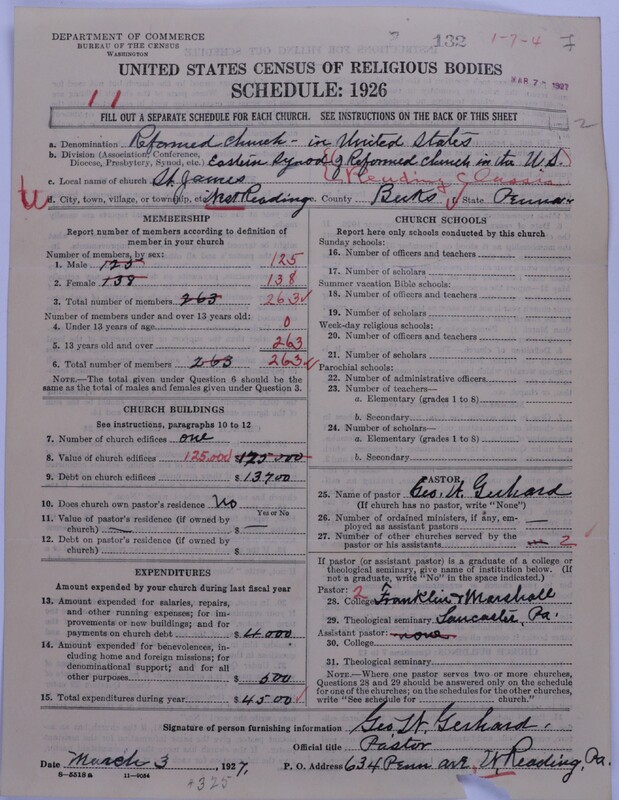 DEPARTMENT OF COMMERCE
BUREAU OF THE CENSUS
WASHINGTON
132
1-7-4
UNITED STATES CENSUS OF RELIGIOUS BODIES
MAR 7 - 1927
SCHEDULE: 1926
11
FILL OUT A SEPARATE SCHEDULE FOR EACH CHURCH. SEE INSTRUCTIONS ON THE BACK OF THIS SHEET
2
a. Denomination Reformed Church - in United States
b. Division (Association, Conference, Diocese, Presbytery, Synod, etc.) Eastern Synod of Reformed Church in the U.S.
c. Local name of church St. James (Reading Classis
d. City, town, village, or township, etc. West Reading c. County Berks State Penna
MEMBERSHIP
Report number of members according to definition of member in your church
Number of members, by sex:
1. Male 125 125
2. Female 138 138
3. Total number of members 263 263
Number of members under and over 13 years old:
4. Under 13 years of age 0
5. 13 years old and over 263
6. Total number of members 263 263
NOTE.—The total given under Question 6 should be the same as the total of males and females given under Question 3.
CHURCH BUILDINGS
See instructions, paragraphs 10 to 12
7. Number of church edifices one
8. Value of church edifices 125,000 $ 125.000
9. Debt on church edifices $ 13700
10. Does church own pastor's residence No
Yes or No
11. Value of pastor's residence (if owned by church) — $ —
12. Debt on pastor's residence (if owned by church) $
EXPENDITURES
Amount expended by your church during last fiscal year
13. Amount expended for salaries, repairs, and other running expenses; for improvements or new buildings; and for payments on church debt $ 4000
14. Amount expended for benevolences, including home and foreign missions; for denominational support; and for all other purposes $ 500
15. Total expenditures during year $ 4500
CHURCH SCHOOLS
Report here only schools conducted by this church
Sunday schools:
16. Number of officers and teachers
17. Number of scholars
Summer vacation Bible schools:
18. Number of officers and teachers
19. Number of scholars
Week-day religious schools:
20. Number of officers and teachers
21. Number of scholars
Parochial schools:
22. Number of administrative officers
23. Number of teachers—
a. Elementary (grades 1 to 8)
b. Secondary
24. Number of scholars—
a. Elementary (grades 1 to 8)
b. Secondary
PASTOR
25. Name of pastor Geo. W. Gerhard
(If church has no pastor, write "None")
26. Number of ordained ministers, if any, employed as assistant pastors —
27. Number of other churches served by the pastor or his assistants 2
If pastor (or assistant pastor) is a graduate of a college or theological seminary, give name of institution below. (If not a graduate, write "No" in the space indicated.)
Pastor: 2
28. College Franklin & Marshall
29. Theological seminary Lancaster, Pa.
Assistant pastor: none
30. College
31. Theological seminary
NOTE.—Where one pastor serves two or more churches, Questions 28 and 29 should be answered only on the schedule for one of the churches; on the schedules for the other churches, write "See schedule for church."
Signature of person furnishing information Geo. W. Gerhard.
Official title Pastor
Date March 3, 1927, P. O. Address 634 Penn ave, W. Reading, Pa.
8-5518a 11-9064
325